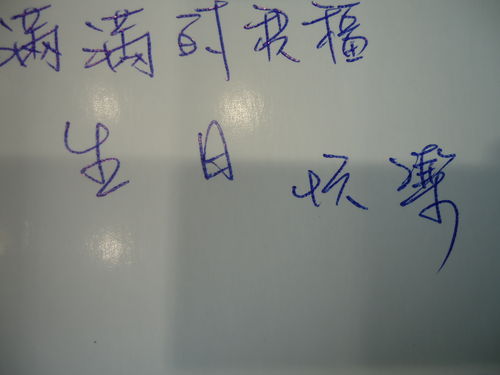 滿滿的祝福
生日快樂